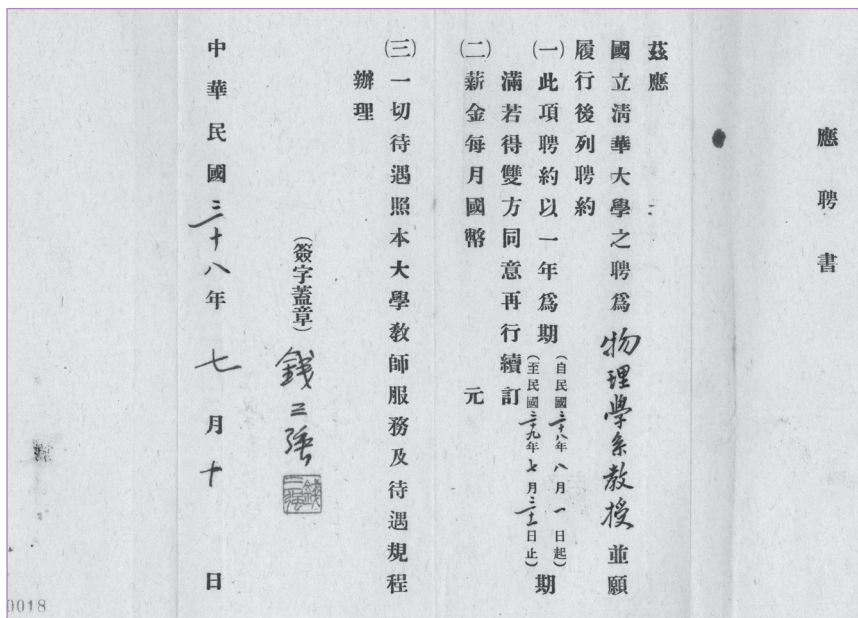 應聘書
茲應
國立清華大學之聘爲物理學系教授並願
履行後列聘約
(一)此項聘約以一年爲期(自民國三十八年八月一日起 至民國三十九年七月三十一日止)期
滿若得雙方同意再行續訂
(二)薪金每月國幣 元
(三)一切待遇照本大學教師服務及待遇規程
辦理
(簽字蓋章)錢三強
錢三強
中華民國三十八年七月十日
0018